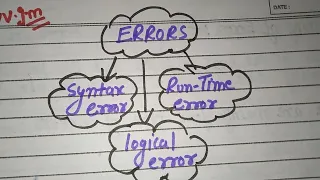 V.Im
DATE:
ERRORS
Syntax
error
Run-Time
error
logical
error